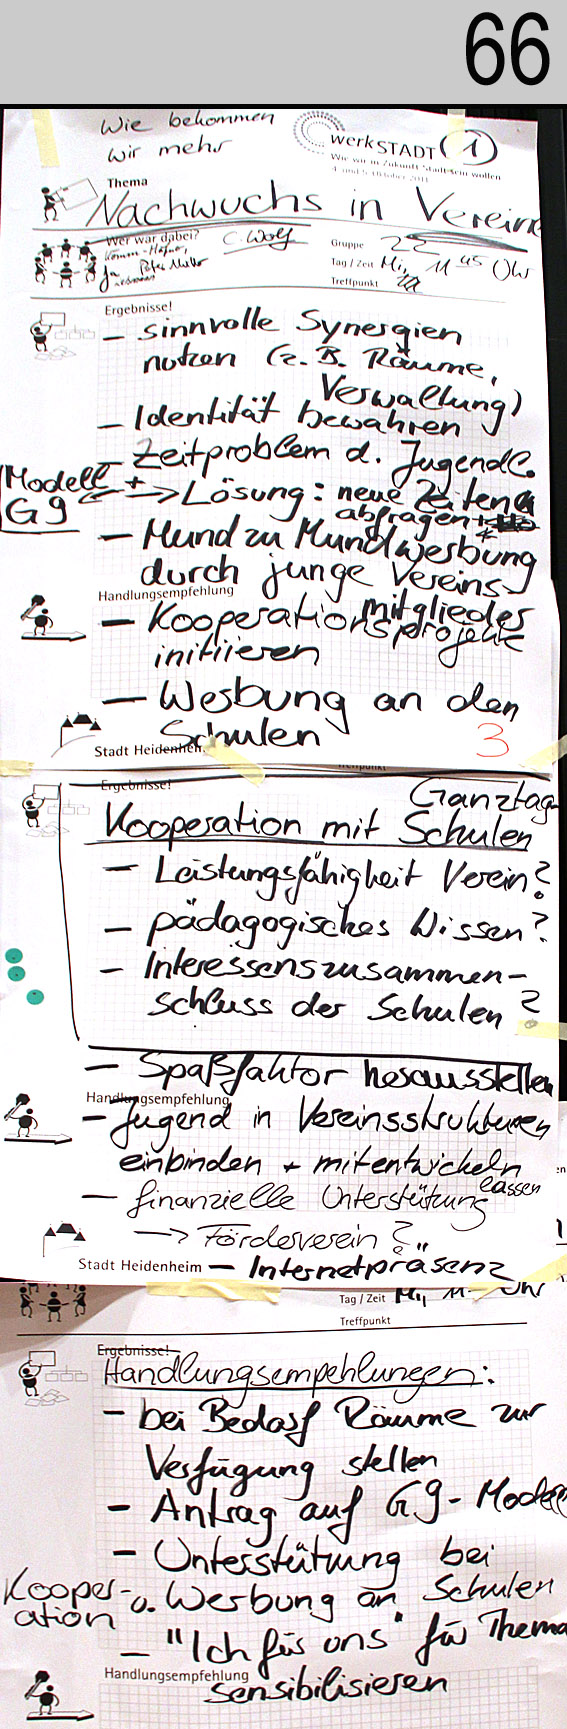 66
Wie bekommen
wir mehr
werkSTADT 1
Wie wir in Zukunft Stadt sein wollen
4. und 5. Oktober 2011
Thema
Nachwuchs in Vereine
Wer war dabei? C. Wolf
Gruppe 22
Tag / Zeit 11 45 Uhr
Treffpunkt
Ergebnisse!
– sinnvolle Synergien
nutzen (z.B. Räume,
Verwaltung)
– Identität bewahren
– Zeitproblem d. Jugendl.
Modell G9
+ –> Lösung: neue Zeiten
abfragen +
– Mund zu Mundwerbung
durch junge Vereins-
mitglieder
Handlungsempfehlung
– Kooperationsprojekte
initiieren
– Werbung an den
Schulen
Stadt Heidenheim
3
Treffpunkt
Ergebnisse!
Ganztag
Kooperation mit Schulen
– Leistungsfähigkeit Verein?
– pädagogisches Wissen?
– Interessenszusammen-
schluss der Schulen?
– Spaßfaktor herausstellen
Handlungsempfehlung
– Jugend in Vereinsstrukturen
einbinden + mitentwickeln
lassen
– finanzielle Unterstützung
–> Förderverein?
Stadt Heidenheim – Internetpräsenz
Tag / Zeit Uhr
Treffpunkt
Ergebnisse!
Handlungsempehlungen:
– bei Bedarf Räume zur
Verfügung stellen
– Antrag auf G9-Modell
– Unterstützung bei
Kooper-
ation
o. Werbung an Schulen
– "Ich für uns" für Thema
sensibilisieren
Handlungsempfehlung